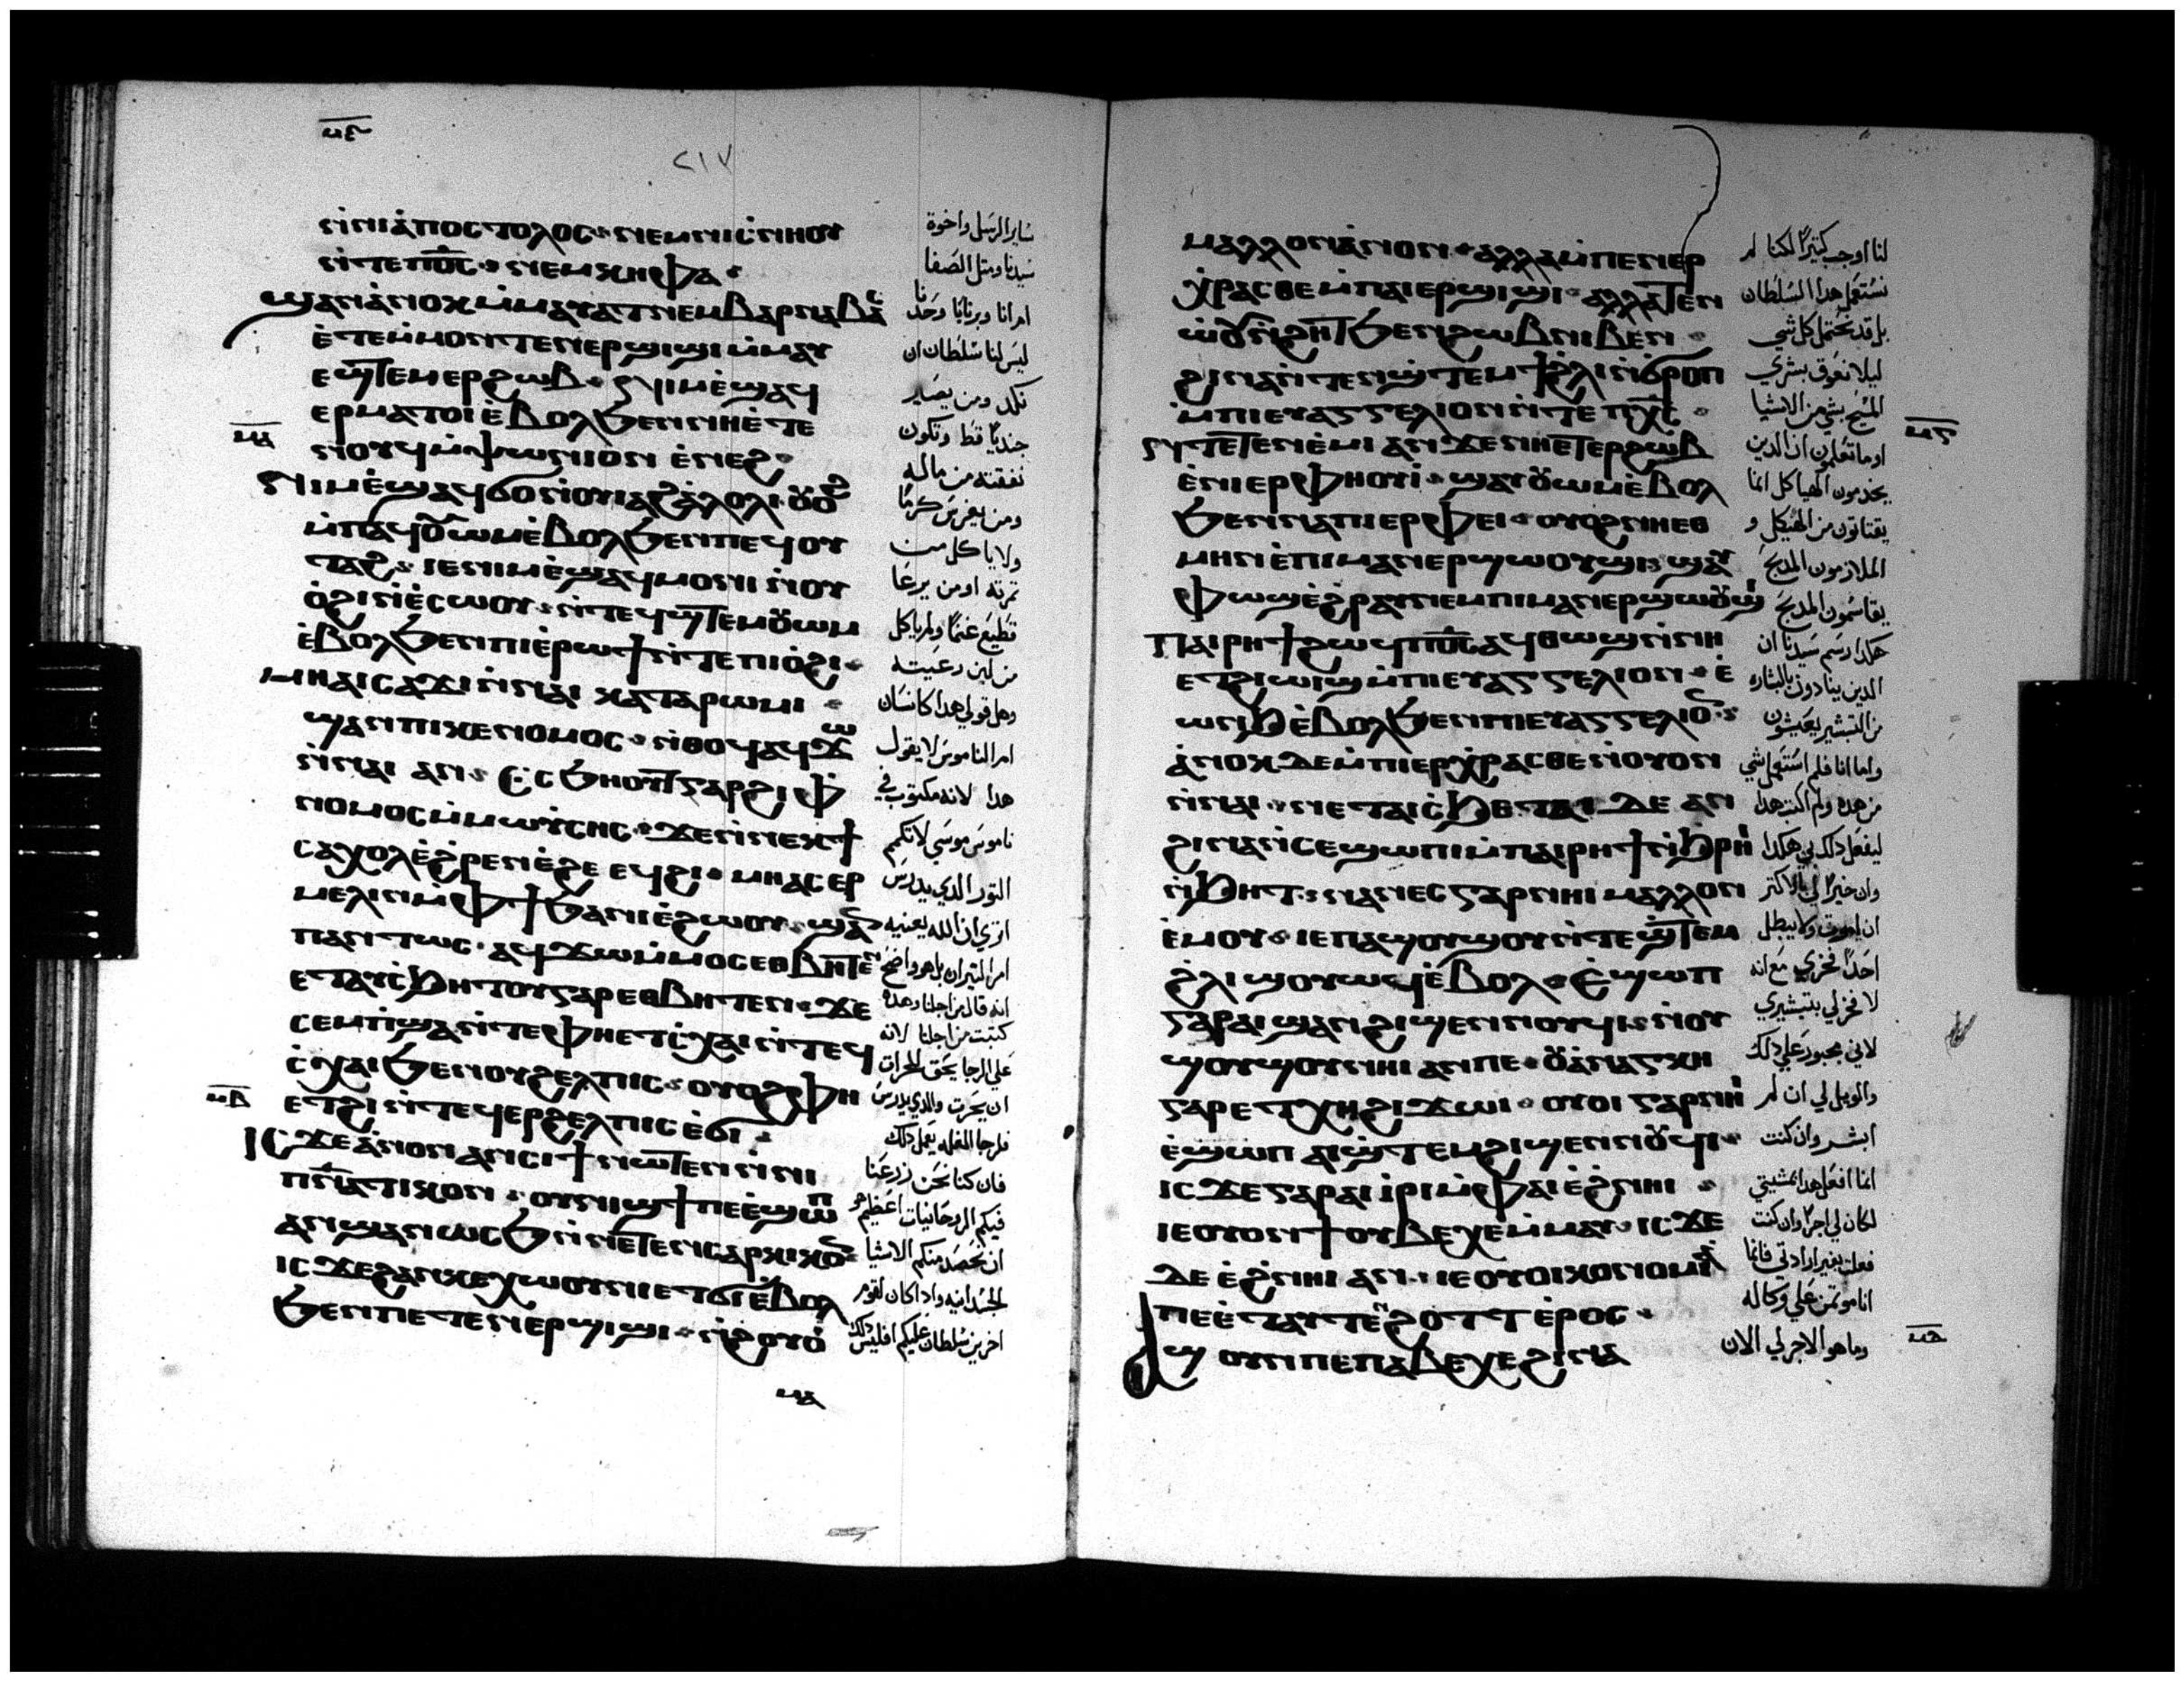 ⲛ̀ⲛⲓⲁ̀ⲡⲟⲥⲧⲟⲗⲟⲥ ⲛⲉⲙⲛⲓⲥ̀ⲛⲏⲟⲩ
ⲛ̀ⲧⲉⲡⲟ̅ⲥ̅ ⲛⲉⲙⲕⲏⲫⲁ
ϣⲁⲛⲁ̀ⲛⲟⲕⲙ̀ⲙⲁⲩⲁⲧⲛⲉⲙⲃⲁⲣⲛⲁⲃⲁⲥ
ⲉ̀ⲧⲉⲙ̀ⲙⲟⲛⲧⲉⲛⲉⲣϣⲓϣⲓⲙ̀ⲙⲁⲩ
ⲉϣⲧⲉⲙⲉⲣϩⲱⲃ ⲛⲓⲙⲉ̀ϣⲁϥ
ⲉⲣⲙⲁⲧⲟⲓⲉ̀ⲃⲟⲗϧⲉⲛⲛⲏⲉ̀ⲧⲉ
ⲛⲟⲩϥⲙ̀ⲯⲱⲛⲓⲟⲛ ⲉ̀ⲛⲉϩ
ⲛⲓⲙⲉ̀ϣⲁϥϭⲟⲛ̀ⲟⲩⲓⲁϩⲁ̀ⲗⲟⲗⲓ ⲟⲩⲟϩ
ⲙ̀ⲡⲁϥⲟⲩⲱⲙⲉ̀ⲃⲟⲗϧⲉⲛⲡⲉϥⲟⲩ
ⲧⲁϩ ⲓⲉⲛⲓⲙⲉ̀ϣⲁϥⲙⲟⲛⲓ ⲛ̀ⲟⲩ
ⲟ̀ϩⲓⲛ̀ⲉ̀ⲥⲱⲟⲩ ⲛ̀ⲧⲉϥϣⲧⲉⲙⲟⲩⲱⲙ
ⲉ̀ⲃⲟⲗϧⲉⲛⲡⲓⲉ̀ⲣⲱϯⲛ̀ⲧⲉⲡⲓⲟ̀ϩⲓ
ⲙⲏⲁⲓⲥⲁϫⲓⲛ̀ⲛⲁⲓ ⲕⲁⲧⲁⲣⲱⲙⲓ
ϣⲁⲛⲡⲓⲕⲉⲛⲟⲙⲟⲥ ⲛ̀ⲑⲟϥⲁϥϫⲱ
ⲛ̀ⲛⲁⲓ ⲁⲛ ⲥ̀ⲥϧⲏⲟⲩⲧⲅⲁⲣϩⲓⲫ
ⲛⲟⲙⲟⲥⲙ̀ⲙⲱⲩ̀ⲥⲏⲥ ϫⲉⲛ̀ⲛⲉⲕϯ
ⲥⲁⲭⲟⲗⲉ̀ϩ̀ⲣⲉⲛⲉ̀ϩⲉ ⲉϥϩⲓ ⲙⲏⲁⲥⲉⲣ
ⲙⲉⲗⲓⲛⲙ̀ⲫϯϧⲁⲛⲓⲉ̀ϩⲱⲟⲩ ϣⲁⲛ
ⲡⲁⲛⲧⲱⲥ ⲁϥϫⲱⲙ̀ⲙⲟⲥⲉⲑⲃⲏⲧⲉⲛ
ⲉⲧⲁⲩⲥ̀ϧⲏⲧⲟⲩⲅⲁⲣⲉⲑⲃⲏⲧⲉⲛ ϫⲉ
ⲥⲉⲙⲡ̀ϣⲁⲛ̀ⲧⲉⲫⲏⲉⲧⲥ̀ⲭⲁⲓⲛ̀ⲧⲉϥ
ⲥ̀ⲭⲁⲓϧⲉⲛⲟⲩϩⲉⲗⲡⲓⲥ ⲟⲩⲟϩⲫⲏ
ⲉⲧϩⲓⲛ̀ⲧⲉϥⲉⲣϩⲉⲗⲡⲓⲥⲉ̀ϭⲓ
ⲓⲥϫⲉⲁ̀ⲛⲟⲛⲁⲛⲥⲓϯⲛⲱⲧⲉⲛⲛ̀ⲛⲓ
ⲡⲛ̅ⲁ̅ⲧⲓⲕⲟⲛ ⲟⲩⲛⲓϣϯⲡⲉⲉ̀ϣⲱⲡ
ⲁⲛϣⲁⲛⲱⲥϧⲛ̀ⲛⲉⲧⲉⲛⲥⲁⲣⲕⲓⲕⲟⲛ
ⲓⲥϫⲉϩⲁⲛⲕⲉⲭⲱⲟⲩⲛⲓⲉⲧϭⲓⲉ̀ⲃⲟⲗ
ϧⲉⲛⲡⲉⲧⲉⲛⲉⲣϣⲓϣⲓ ⲛ̀ϩⲟⲩⲟ̀
٢١٧
ساير الرسل واخوة
سيدنا ومثل الصفا
ام انا وبرنابا وحدنا
ليس لنا سلطان ان
نكد ومن يصاير
جنديا قط وتكون
نفقته من ماله
ومن يغرس كرما
ولا ياكل من
ثمرته او من يرعا
قطيع غنما ولم ياكل
من لبن رعيته
وهل قولي هدا كانسان
ام الناموس لا يقول
هدا لانه مكتوب في
ناموس موسي لا تكمم
التور الدي يدرس
اتري ان الله يعنيه
انه قال من اجلنا وهده
كتبت من اجلنا لانه
علي الرجا يحق للحرات
ان يحرت والدي يدرس
فان كنا نحن زرعنا
فيكم الروحانيات اعظيم هو
ان نحصد منكم الاشيا
الجسدانيه واداكان لقوم
اخرين سلطان عليكم افليس دلك
ⲙⲁⲗⲗⲟⲛⲁ̀ⲛⲟⲛ ⲁⲗⲗⲁⲙ̀ⲡⲉⲛⲉⲣ
ⲭ̀ⲣⲁⲥⲑⲉⲙ̀ⲡⲁⲓⲉⲣϣⲓϣⲓ ⲁⲗⲗⲁⲧⲉⲛ
ⲱ̀ⲟⲩⲛ̀ϩⲏⲧϧⲉⲛϩⲱⲃⲛⲓⲃⲉⲛ
ϩⲓⲛⲁⲛ̀ⲧⲉⲛϣ̀ⲧⲉⲙϯϩ̀ⲗⲓⲛ̀ϭ̀ⲣⲟⲡ
ⲙ̀ⲡⲓⲉⲩⲁⲅⲅⲉⲗⲓⲟⲛⲛ̀ⲧⲉ ⲡⲭ̅ⲥ̅
ⲛ̀ⲧⲉⲧⲉⲛⲉ̀ⲙⲓ ⲁⲛ ϫⲉⲛⲏⲉⲧⲉⲣϩⲱⲃ
ⲉ̀ⲛⲓⲉⲣⲫⲏⲟⲩⲓ̀ ϣⲁⲩⲟⲩⲱⲙⲉ̀ⲃⲟⲗ
ϧⲉⲛⲛⲁⲡⲓⲉⲣⲫⲉⲓ ⲟⲩⲟϩⲛⲏⲉⲑ
ⲙⲏⲛⲉ̀ⲡⲓⲙⲁⲛⲉⲣϣⲱⲟⲩϣⲓ ϣⲁⲩ
ⲫⲱϣⲉ̀ϩ̀ⲣⲁⲩⲛⲉⲙⲡⲓⲙⲁⲛⲉⲣϣⲱⲟⲩϣⲓ
ⲡⲁⲓⲣⲏϯϩⲱϥⲡⲟ̅ⲥ̅ⲁϥⲑⲱϣⲛ̀ⲛⲏ
ⲉⲧϩⲓⲱⲓϣⲙ̀ⲡⲓⲉⲩⲁⲅⲅⲉⲗⲓⲟⲛ ⲉ̀
ⲱⲛϧⲉ̀ⲃⲟⲗϧⲉⲛⲡⲓⲉⲩⲁⲅⲅⲉⲗⲓⲟⲛ
ⲁ̀ⲛⲟⲕ ⲇⲉⲙ̀ⲡⲓⲉⲣⲭ̀ⲣⲁⲥⲑⲉⲛ̀ⲟⲩⲟⲛ
ⲛ̀ⲛⲁⲓ ⲛⲉⲧⲁⲓⲥ̀ϧⲉ ⲛⲁⲓ ⲇⲉ ⲁⲛ
ϩⲓⲛⲁⲛ̀ⲥⲉϣⲱⲡⲓⲙ̀ⲡⲁⲓⲣⲏϯⲛ̀ϧ̀ⲣⲏⲓ
ⲛ̀ϧⲏⲧ ⲛⲁⲛⲉⲥⲅⲁⲣⲛⲏⲓ ⲙⲁⲗⲗⲟⲛ
ⲉ̀ⲙⲟⲩ ⲓⲉⲡⲁϣⲟⲩϣⲟⲩⲛ̀ⲧⲉϣ̀ⲧⲉⲙ
ϩ̀ⲗⲓ ϣⲟⲩⲱϥⲉ̀ⲃⲟⲗ ⲉ̀ϣⲱⲡ
ⲅⲁⲣⲁⲓϣⲁⲛϩⲓϣⲉⲛⲛⲟⲩϥⲓ ⲛⲟⲩ
ϣⲟⲩϣⲟⲩⲛⲏⲓ ⲁⲛⲡⲉ ⲟⲩⲁ̀ⲛⲁⲅⲕⲏ
ⲅⲁⲣⲉⲧⲭⲏϩⲓϫⲱⲓ ⲟⲩⲟⲓ ⲅⲁⲣⲛⲏⲓ
ⲉ̀ϣⲱⲡ ⲁⲓϣ̀ⲧⲉⲙϩⲓϣⲉⲛⲛⲟⲩϥⲓ
ⲓⲥϫⲉⲅⲁⲣⲁⲓ ⲓ̀ⲣⲓⲙ̀ⲫⲁⲓⲉ̀ϩ̀ⲛⲏⲓ
ⲓⲉⲟⲩⲟⲛϯⲟⲩⲃⲉⲭⲉⲙ̀ⲙⲁⲩ ⲓⲥϫⲉ
ⲇⲉ ⲉ̀ϩ̀ⲛⲏⲓ ⲁⲛ ⲓⲉⲟⲩⲟⲓⲕⲟⲛⲟⲙⲓⲁ̀
ⲡⲉⲉ̀ⲧⲁⲩⲧⲉⲛϩⲟⲩⲧⲧ ⲉ̀ⲣⲟⲥ
ⲁϣ ⲟⲩⲛⲡⲉⲡⲁⲃⲉⲭⲉϩⲓⲛⲁ
لنا اوجب كتيرا لكنا لم
نستعمل هدا السلطان
بل قد نحتمل كل شي
ليلا نعوق بشري
المسيح بشي من الاشيا
اوما تعلمون ان الدين
يخدمون الهياكل انما
يقتاتون من الهيكل و
الملازمون المدبح
يقاسمون المدبح
هكدا رسم سيدنا ان
الدين ينادون بالبشاره
من التبشير يعيشون
واما انا فلم استعمل شي
من هده ولم اكتب هدا
ليفعل دلك بي هكدا
وان خيرا لي بالاكتر
ان اموت ولا يبطل
احدا فخري مع انه
لا فخر لي بتبشيري
لاني مجبور علي دلك
والويل لي ان لم
ابشر وان كنت
انما افعل هدا بمشيتي
لكان لي اجرا وان كنت
فعلت بغير ارادتي فانما
انا موتمن علي وكاله
وما هو الاجر لي الان